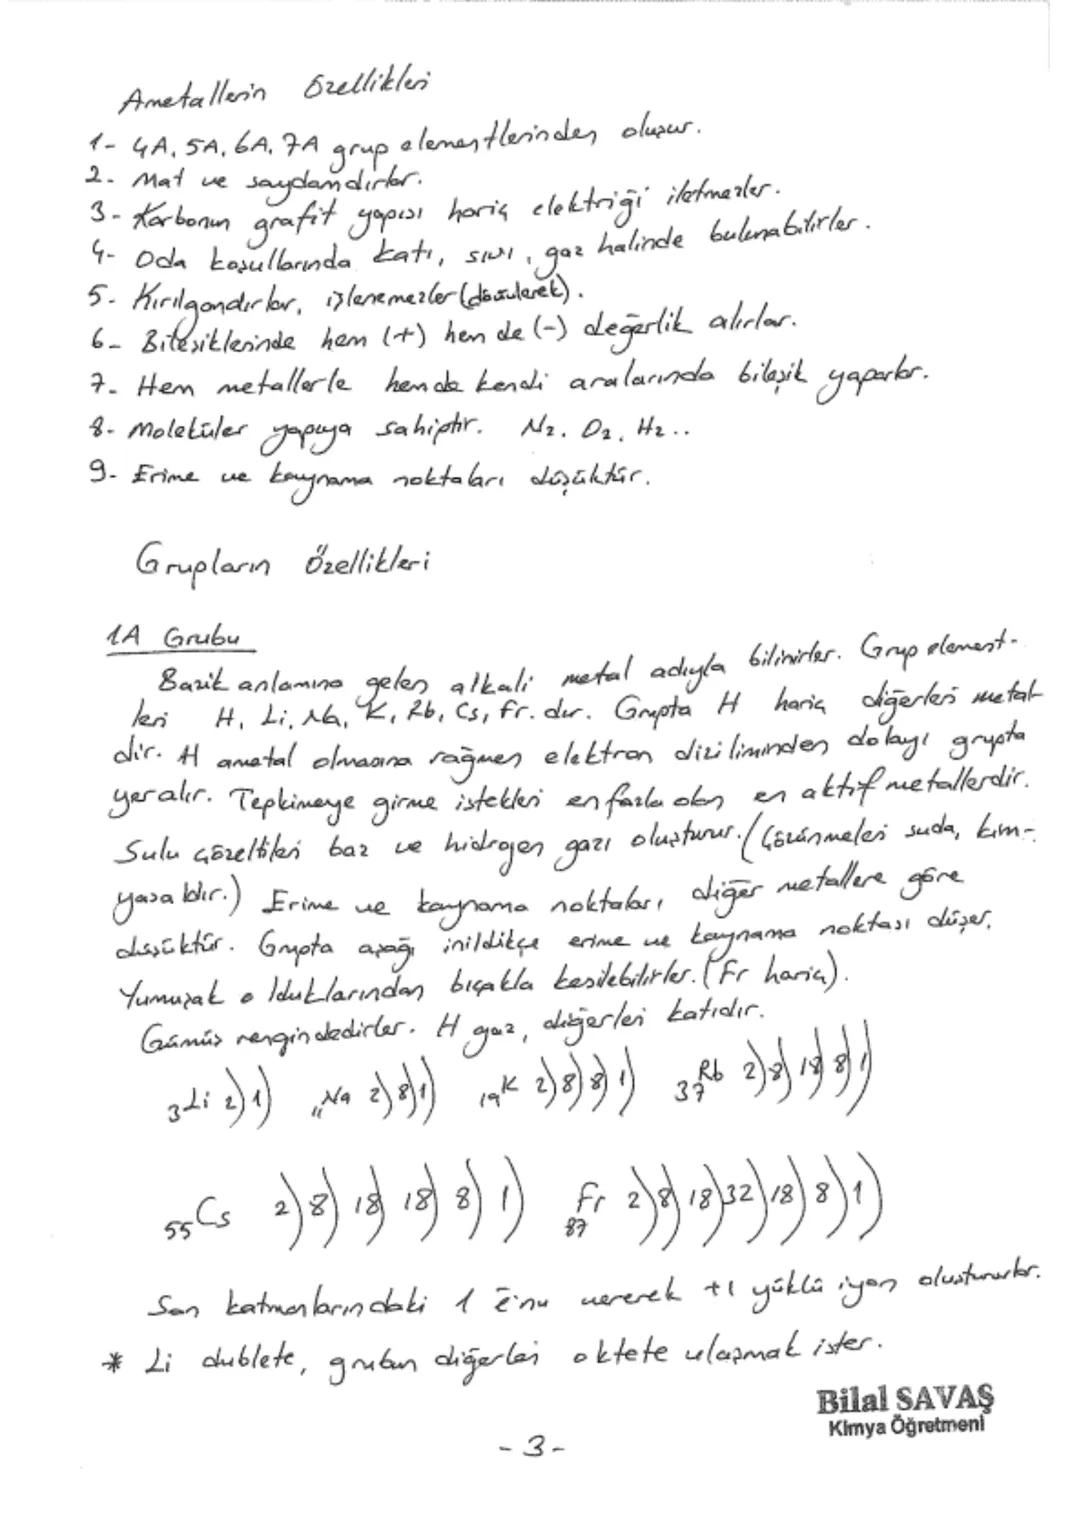 Ametallerin Özellikleri
1- 4A, 5A, 6A, 7A grup elementlerinden oluşur.
2- Mat ve saydamdırlar.
3- Karbonun grafit yapısı hariç elektriği iletmezler.
4- Oda koşullarında katı, sıvı, gaz halinde bulunabilirler.
5- Kırılgandırlar, işlenemezler (dövülerek).
6- Bileşiklerinde hem (+) hem de (-) değerlik alırlar.
7- Hem metallerle hemde kendi aralarında bileşik yaparlar.
8- Moleküler yapıya sahiptir. N2, O2, H2..
9- Erime ve kaynama noktaları düşüktür.
Grupların Özellikleri
1A Grubu
Bazik anlamına gelen alkali metal adıyla bilinirler. Grup element-
leri H, Li, Na, K, Rb, Cs, Fr. dur. Grupta H hariç diğerleri metal-
dir. H ametal olmasına rağmen elektron diziliminden dolayı grupta
yer alır. Tepkimeye girme istekleri en fazla olan en aktif metallerdir.
Sulu çözeltileri baz ve hidrojen gazı oluşturur. (Çözünmeleri suda, kim-
yasaldır.) Erime ve kaynama noktaları diğer metallere göre
düşüktür. Grupta aşağı inildikçe erime ve kaynama noktası düşer.
Yumuşak olduklarından bıçakla kesilebilirler. (Fr hariç).
Gümüş rengindedirler. H gaz, diğerleri katıdır.
3Li 2) 1) 11Na 2) 8) 1) 19K 2) 8) 8) 1) 37Rb 2) 8) 18) 8) 1)
55Cs 2) 8) 18) 18) 8) 1) 87Fr 2) 8) 18) 32) 18) 8) 1)
Son katmanlarındaki 1 ē'nu vererek +1 yüklü iyon oluştururlar.
* Li dublete, grubun diğerleri oktete ulaşmak ister.
Bilal SAVAŞ
Kimya Öğretmeni
- 3 -